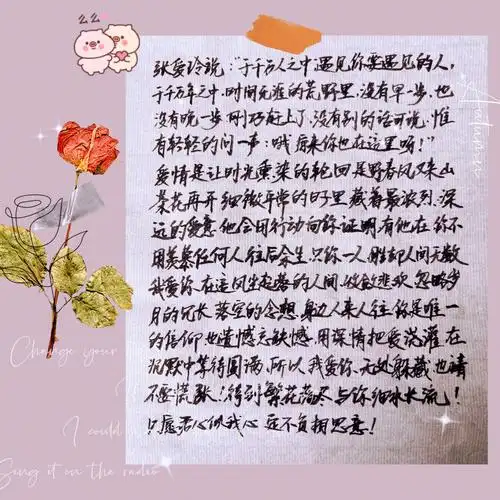 么么
张爱玲说:“于千万人之中遇见你要遇见的人,
于千万年之中,时间无涯的荒野里,没有早一步,也
没有晚一步,刚巧赶上了,没有别的话可说,惟
有轻轻的问一声:哦,原来你也在这里吗!”
爱情是让时光熏染的轮回是野春风又来山
茶花再开细微平常的日子里藏着最浓烈、深
远的爱意他会用行动向你证明,有他在你不
用羡慕任何人往后余生,只你一人,胜却人间无数
我爱你,在这风生起落的人间,收敛悲欢,忽略岁
月的冗长,落空的念想,身边人来人往,你是唯一
的信仰也遗憾无缺憾,用深情把爱浇灌在
沉默中等待圆满,所以我爱你,无处躲藏也请
不要慌张!得到繁花落尽与你细水长流!
只愿君心似我心定不负相思意!
Autumn
Change your
I could
Sing it on the radio